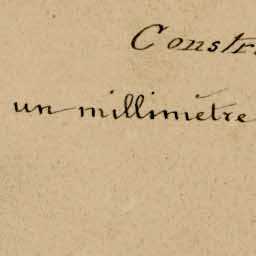 Constr
un millimètre